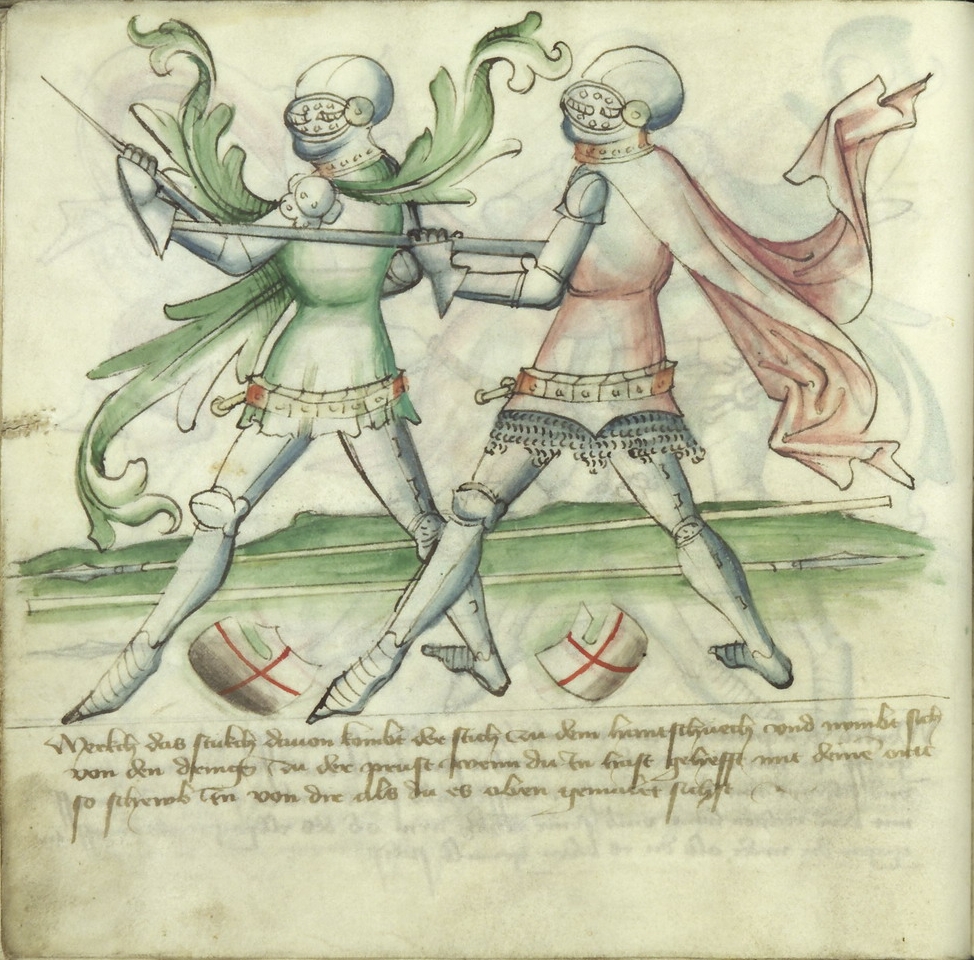 Merckh das stukch dauon kombt der stich zu dem hanntschuech vnd nymbt sich
von den dringñ zu der prust wenn du in hast gehefft mit deine ortt
so schewb in von dir als du es oben gemalet sichst